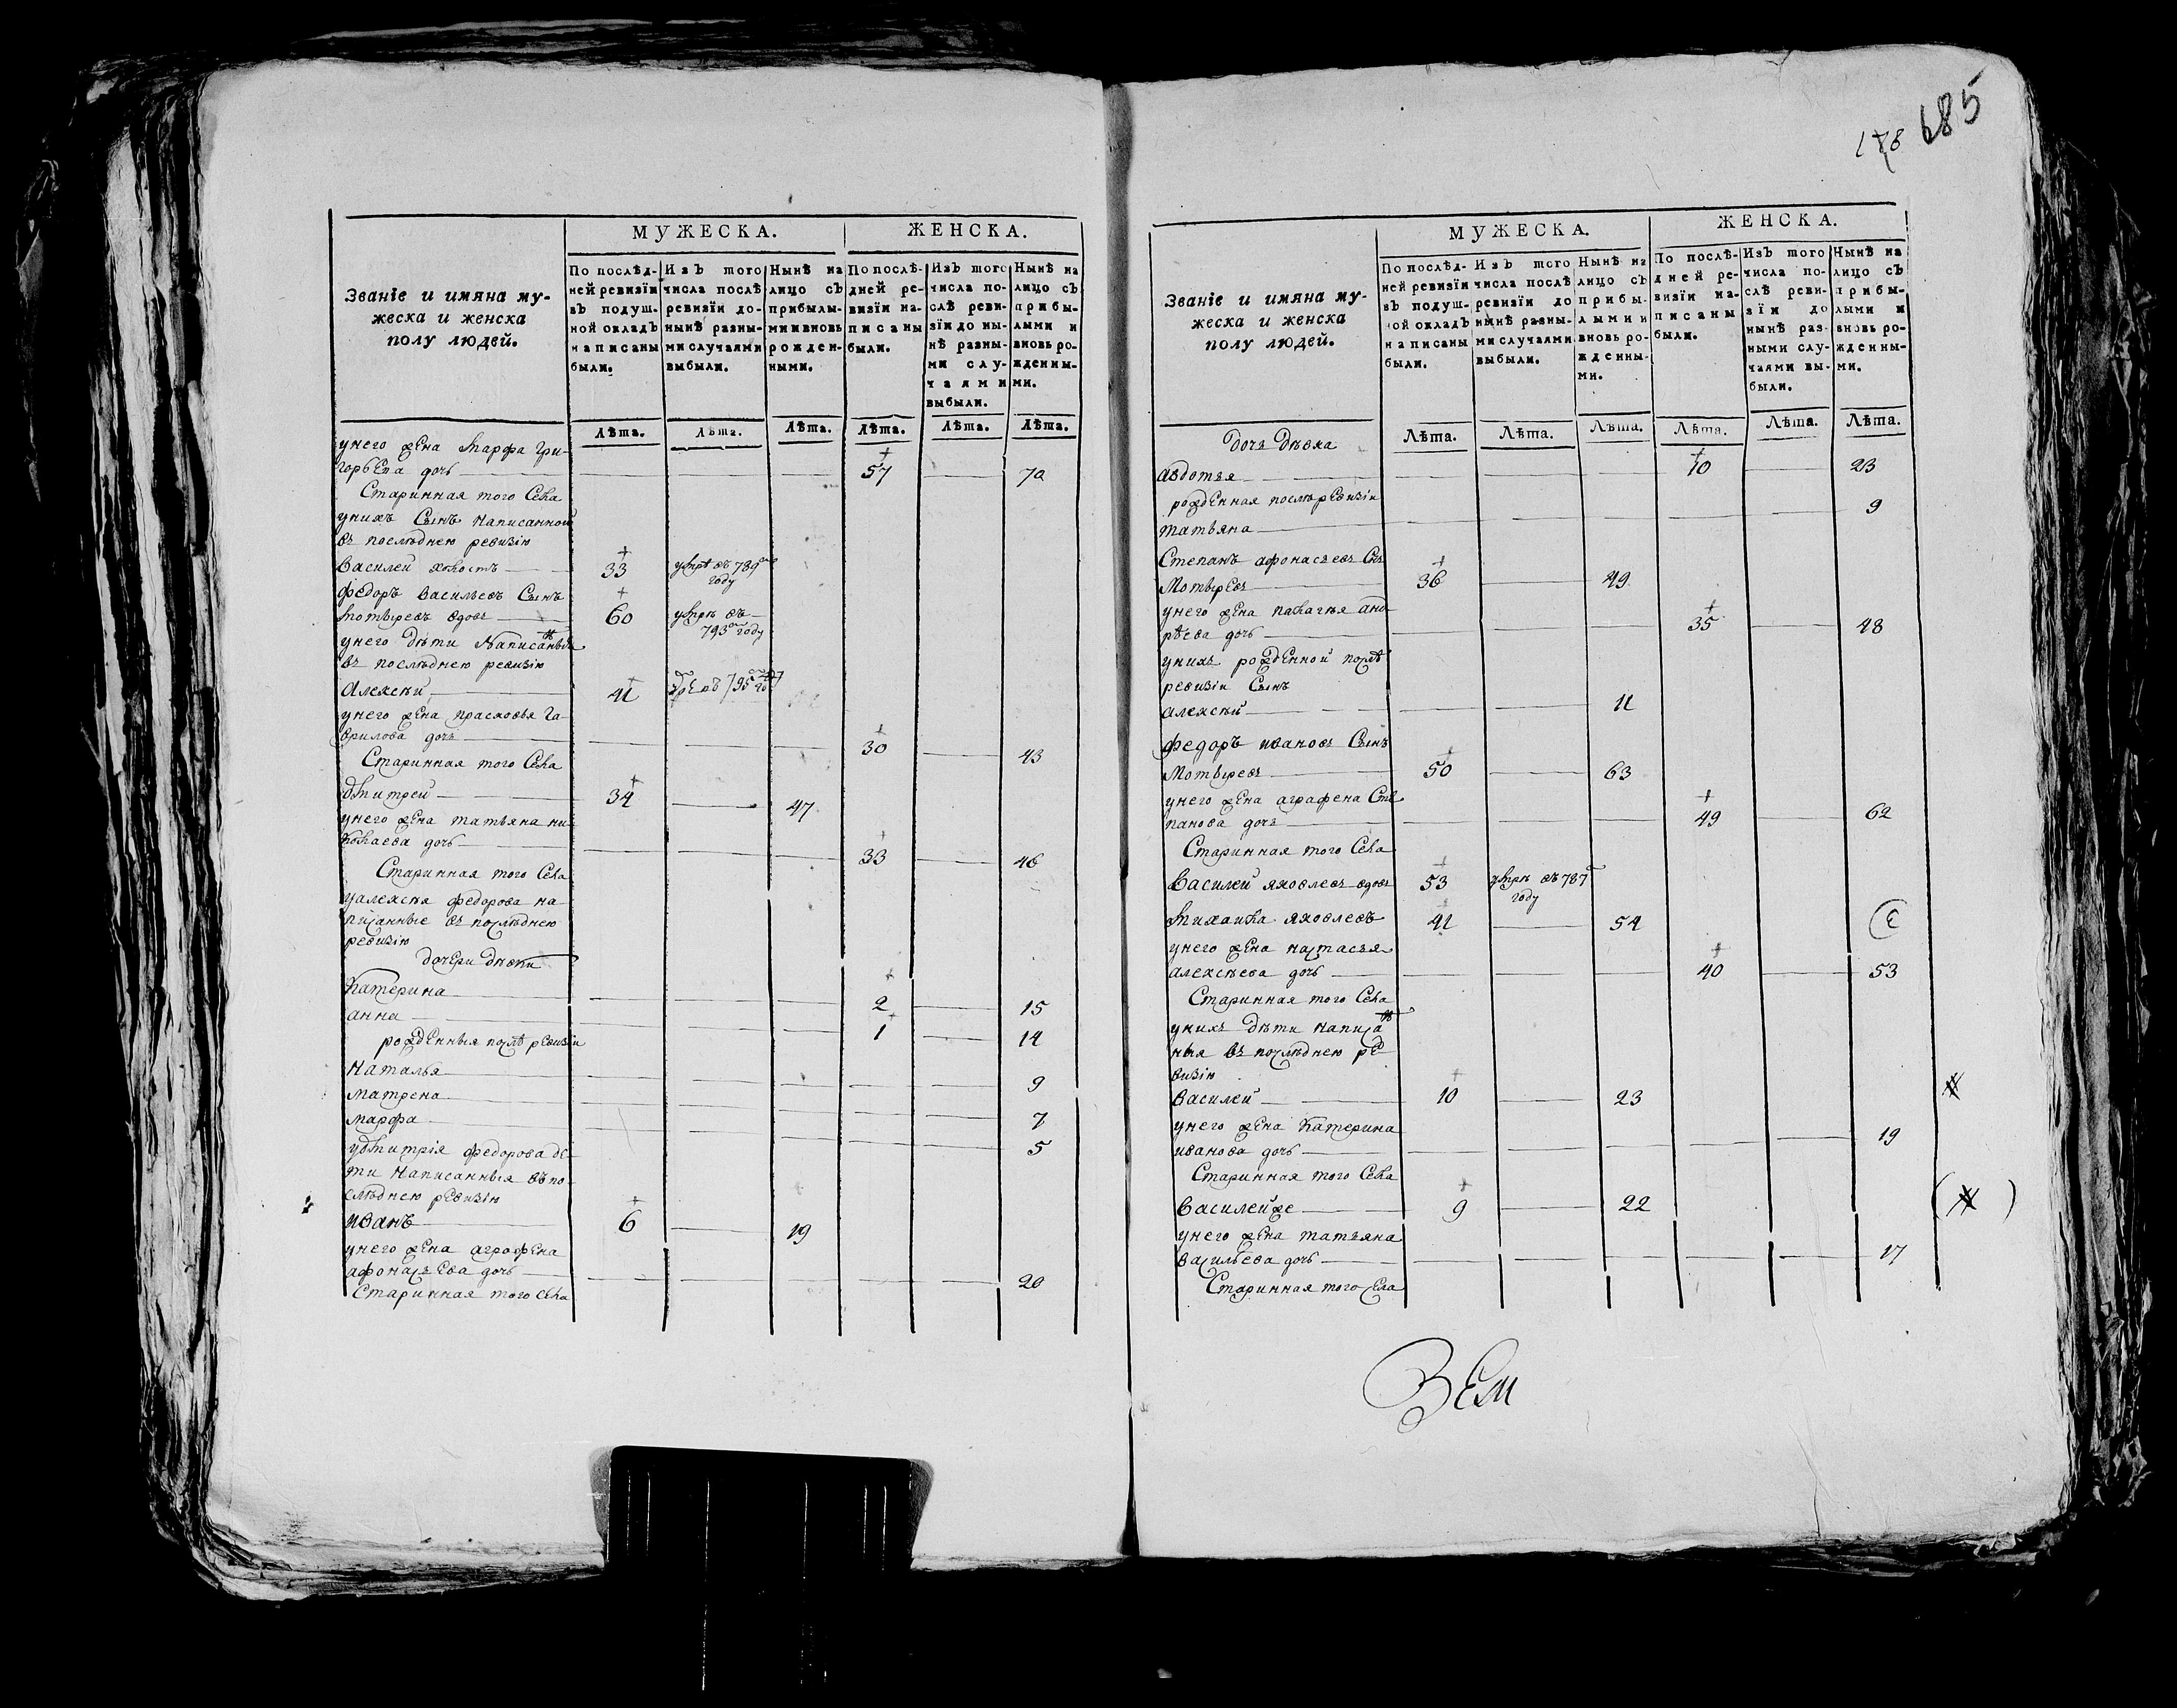 178 685
МУЖЕСКА. ЖЕНСКА.
Званіе и имяна му-
жеска и женска
полу людей.
По послѣд-
ней ревизіи
въ подуш-
ной окладъ
написаны
были.
Изъ того
числа послѣ
ревизіи до-
нынѣ разны-
ми случаями
выбыли.
Нынѣ на
лицо съ
прибылы-
ми и вновь
рожден-
ными.
По послѣ-
дней ре-
визіи на-
писаны
были.
Изъ того
числа по-
слѣ реви-
зіи до ны-
нѣ разны-
ми слу-
чаями
выбыли.
Нынѣ на
лицо съ
прибы-
лыми и
вновь ро-
жденны-
ми.
Лѣта. Лѣта. Лѣта. Лѣта. Лѣта. Лѣта.
унего жена марфа гри-
горьева дочь 57 70
Старинная того Села
унихъ Сынъ написанной
въ последнею ревизію
василей холостъ 33 умре въ 789 году
федоръ васильевъ Сынъ
мотыревъ вдовъ 60 умрѣ въ 793 году
унего дѣти написаныя
въ последнею ревизію
Алексѣй 41 795
унего жена прасковья га-
врилова дочь 30 43
Старинная того Села
дмитрей 34 47
унего жена татьяна ни-
колаева дочь 33 46
Старинная того Села
уалексѣя федорова на-
писанные въ послѣднею
ревизію
дочери дѣвки
Катерина 2 15
анна 1 14
рожденныя послѣ ревизіи
Наталья 9
матрена 7
марфа 5
удмитрія федорова де-
ти написанныя въ по-
слѣднею ревизію
иванъ 6 19
унего жена аграфена
афонасьева дочь 20
Старинная того села
МУЖЕСКА. ЖЕНСКА.
Званіе и имяна му-
жеска и женска
полу людей.
По послѣд-
ней ревизіи
въ подуш-
ной окладъ
написаны
были.
Изъ того
числа послѣ
ревизіи до
нынѣ разны-
ми случаями
выбыли.
Нынѣ на
лицо съ
прибы-
лыми и
вновь ро-
жденны-
ми.
По послѣ-
дней ре-
визіи на-
писаны
были.
Изъ того
числа по-
слѣ реви-
зіи до
нынѣ раз-
ными слу-
чаями вы-
были.
Нынѣ на
лицо съ
прибы-
лыми и
вновь ро-
жденны-
ми.
Лѣта. Лѣта. Лѣта. Лѣта. Лѣта. Лѣта.
дочь дѣвка
авдотья 10 23
рожденная послѣ ревизіи
татьяна 9
Степанъ афонасьевъ Снъ
Мотыревъ 36 49
унего жена палагѣя анд-
рѣева дочь 35 48
унихъ рожденной послѣ
ревизіи Сынъ
алексѣй 11
федоръ ивановъ Сынъ
Мотыревъ 50 63
унего жена аграфена Сте-
панова дочь 49 62
Старинная того Села
василей яковлевъ вдовъ 53 умрѣ въ 787 году
михаила яковлевъ 41 54
унего жена настасья
алексѣева дочь 40 53
Старинная того Села
унихъ дѣти написан-
ныя въ послѣднею ре-
визію
василей 10 23
унего жена Катерина
иванова дочь 19
Старинная того Села
василейже 9 22
унего жена татьяна
васильева дочь 17
Старинная того села
Зем